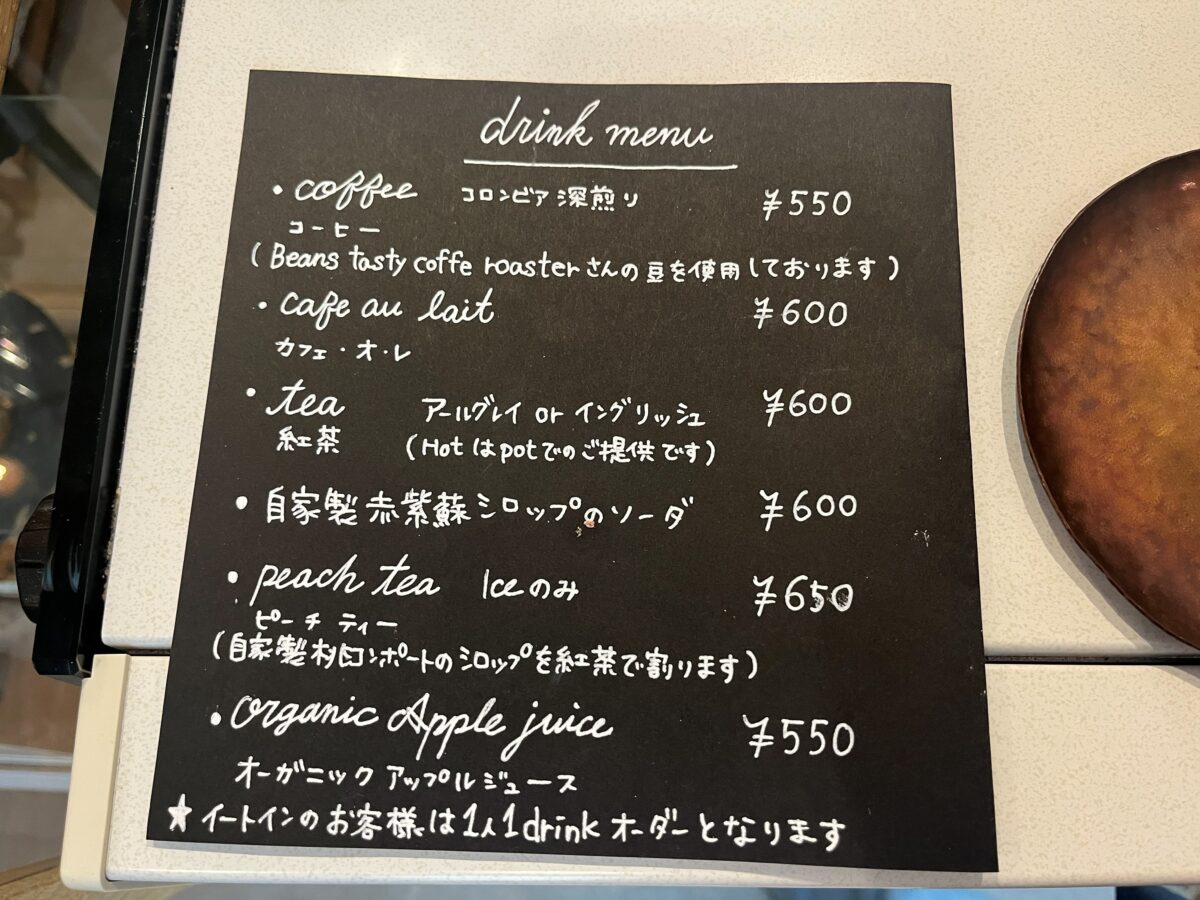 drink menu
・coffee コロンビア深煎り ¥550
コーヒー
(Beans tasty coffe roasterさんの豆を使用しております)
・cafe au lait ¥600
カフェ・オ・レ
・tea アールグレイ or イングリッシュ ¥600
紅茶 (Hotはpotでのご提供です)
・自家製赤紫蘇シロップのソーダ ¥600
・peach tea Iceのみ ¥650
ピーチ ティー
(自家製 ンポートのシロップを紅茶で割ります)
・organic Apple juice ¥550
オーガニック アップルジュース
★イートインのお客様は1人1drinkオーダーとなります